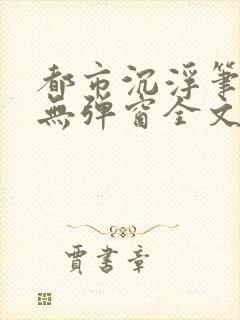 都市沉浮筆
無彈窗全文
賈書章